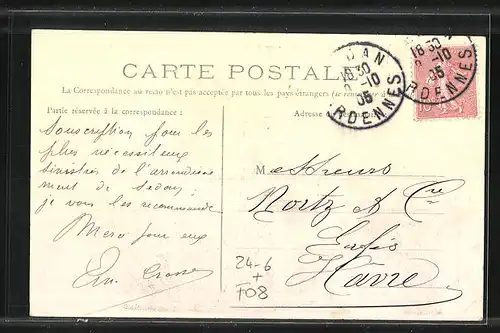 CARTE POSTALE
La Correspondance au recto n'est pas acceptée par tous les pays étrangers (se renseigner à la
Partie réservée à la correspondance :
Adresse du
DAN
18 30
-10
05
RDENNES
18 30
-10
05
RDENNES
10
Souscription pour les
plus nécessiteux
sinistrés de l'arrondisse
ment de Sedan
je vous les recommande
Merci pour eux
Em. Crosse
M essieurs
Nortz & Cie
Cafés
Havre.
24-6
+
F08